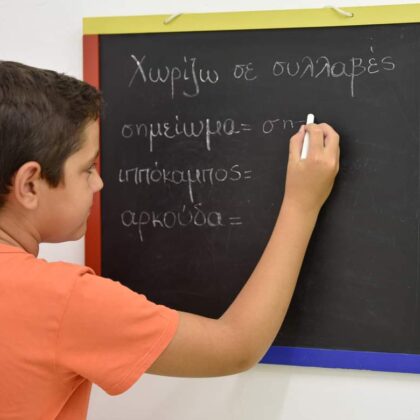 Χωρίζω σε συλλαβές
σημείωμα = ση-
ιππόκαμπος =
αρκούδα =